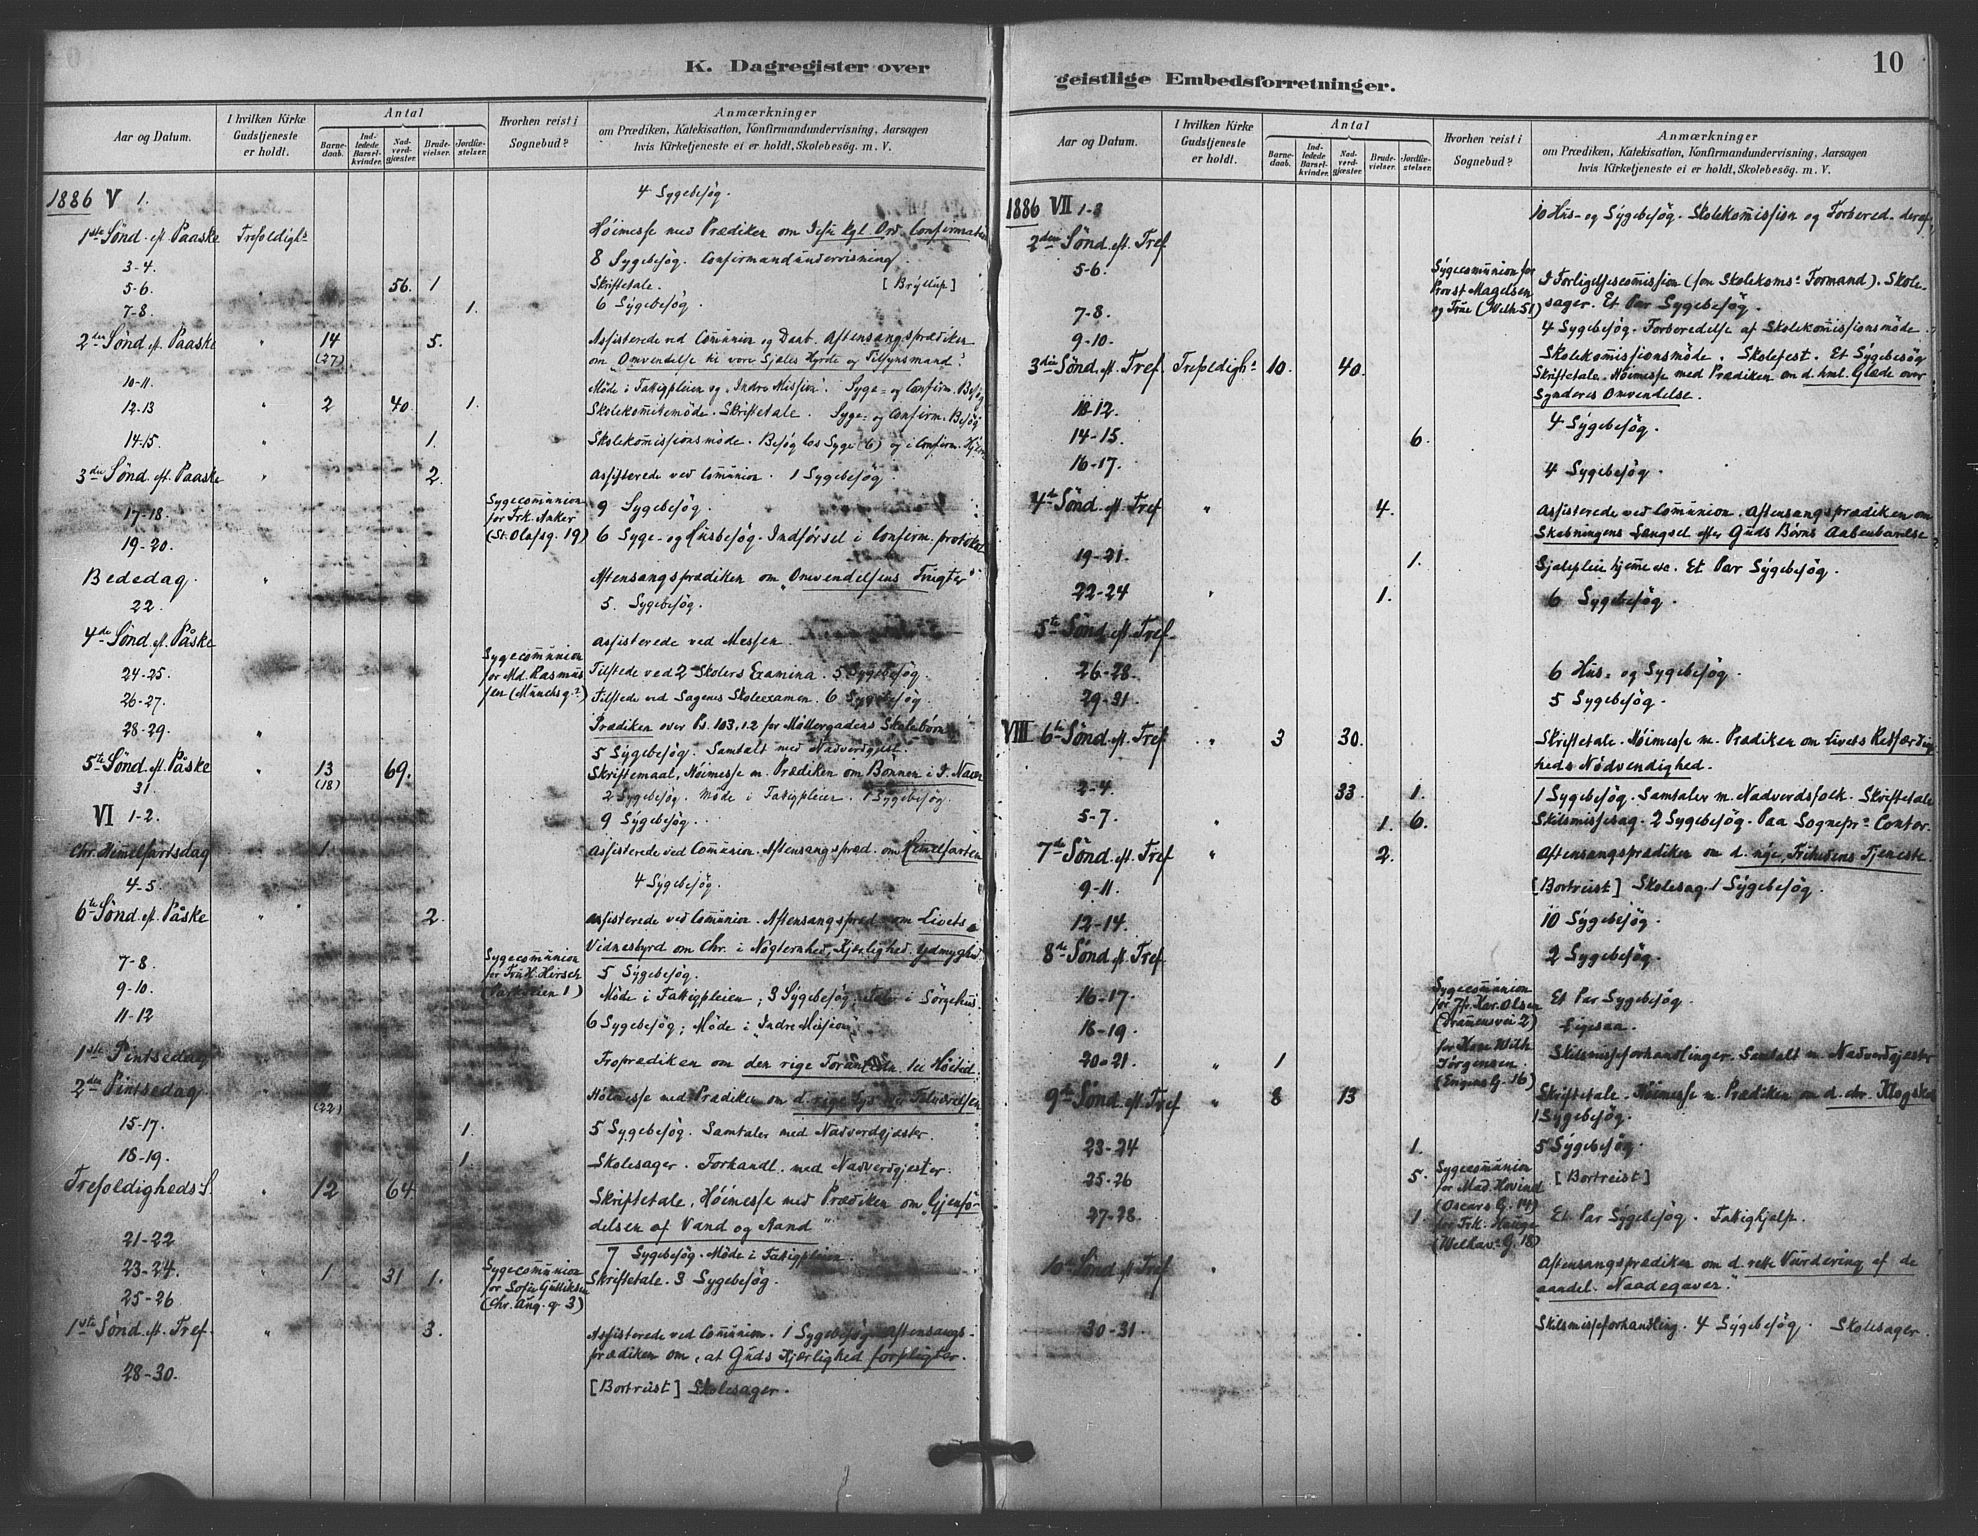 K. Dagregister over
Aar og Datum.
I hvilken Kirke Gudstjeneste er holdt.
Antal
Barnedaab.
Indledede Barselkvinder.
Nadverdgjæster.
Brudevielser.
Jordfæstelser.
Hvorhen reist i Sognebud?
Anmærkninger
om Prædiken, Katekisation, Konfirmandundervisning, Aarsagen
hvis Kirketjeneste ei er holdt, Skolebesøg. m. V.
1886 V 1. 4 Sygebesøg.
1ste Sønd. eft. Paaske Trefoldighs Høimesse med Prædiken om Jesu kgl. Ord. Confirmation
3-4. 8 Sygebesøg. Confirmandundervisning.
5-6. " 56. 1 Skriftetale. [Bryllup]
7-8. 1. 6 Sygebesøg.
2den Sønd. eft. Paaske " 14 (27) 5. Assisterede ved Communion og Daab. Aftensangsprædiken
om "Omvendelse til vore Sjæles Hyrde og Tilsynsmand".
10-11. Møde i Fattigpleien og "Indre Mission". Syge- og Confirm. Besøg
12-13 " 2 40. 1. Skolekomitemøde. Skriftetale. Syge- og Confirm. Besøg
14-15. " 1. Skolekomissionsmøde. Besøg hos Syge (6) og i Confirm.
3die Sønd. eft. Paaske " 2. Assisterede ved Communion. 1 Sygebesøg.
17-18. Sygecommunion for Frk. Anker (St. Olafsg. 19) 9 Sygebesøg.
19-20. 6 Syge- og Husbesøg. Indførsel i Confirm. protokol
Bededag. " Aftensangsprædiken om "Omvendelsens Frugter"
22. 5. Sygebesøg.
4de Sønd. eft. Påske Assisterede ved Messen.
24-25. Sygecommunion for Md. Rasmussen (Munchsg.) Tilstede ved 2 Skolers Examina. 5 Sygebesøg.
26-27. Tilstede ved Sagenes Skoleexamen. 6 Sygebesøg.
28-29. " Prædiken over Ps. 103, 1.2 for Møllergadens Skolebørn
5 Sygebesøg. Samtalt med Nadverdgjester.
5te Sønd. eft. Påske " 13 (18) 69. Skriftemaal, Høimesse m. Prædiken om Bønnen i J. Navn
31. 2 Sygebesøg. Møde i Fattigpleien. 1 Sygebesøg.
VI 1-2. 9 Sygebesøg.
Chr. Himmelfartsdag " 1 Assisterede ved Communion. Aftensangspræd. om Himmelfarten
4-5. 4 Sygebesøg.
6te Sønd. eft. Påske " 2. Assisterede ved Communion. Aftensangspræd. om Livets
Vidnesbyrd om Chr. i Nøgternhed, Kjærlighed, Ydmyghed.
7-8. Sygecommunion for Fru H. Hirsch (Parkveien 1) 5 Sygebesøg.
9-10. Møde i Fattigpleien; 3 Sygebesøg; Tale i Sørgehus.
11-12 6 Sygebesøg; Møde i "Indre Mission".
1ste Pintsedag " Froprædiken om den rige til Høitid.
2den Pintsedag " (22) Høimesse med Prædiken om d. rige
15-17. 1. 5 Sygebesøg. Samtaler med Nadverdgjæster.
18-19. 1. Skolesager. Forhandl. med Nadverdgjester.
Trefoldigheds S. " 12 64 Skriftetale, Høimesse med Prædiken om "Gjenfødelsen
af Vand og Aand"
21-22 7 Sygebesøg. Møde i Fattigpleien.
23-24. " 1 31 1. Sygecommunion for Sofie Gulliksen (Chr. Aug. g. 3) Skriftetale. 3 Sygebesøg.
25-26
1ste Sønd. eft. Tref. " 3. Assisterede ved Communion. 1 Sygebesøg. Aftensangs-
prædiken om, at Guds Kjærlighed forpligter.
28-30. [Bortreist] Skolesager.
geistlige Embedsforretninger.
10
Aar og Datum.
I hvilken Kirke Gudstjeneste er holdt.
Antal
Barnedaab.
Indledede Barselkvinder.
Nadverdgjæster.
Brudevielser.
Jordfæstelser.
Hvorhen reist i Sognebud?
Anmærkninger
om Prædiken, Katekisation, Konfirmandundervisning, Aarsagen
hvis Kirketjeneste ei er holdt, Skolebesøg. m. V.
1886 VII 1-3 10 Hus- og Sygebesøg. Skolekommission og Forbered. deraf
2den Sønd. eft. Tref.
5-6. Sygecommunion for Provst Magelsen og Frue (Welh. 51) I Forligelsescommission (som Skolekoms. Formand). Skole-
sager. Et Par Sygebesøg.
7-8. 4 Sygebesøg. Forberedelse af Skolekommissionsmøde.
9-10. Skolekommissionsmøde. Skolefest. Et Sygebesøg
3die Sønd. eft. Tref. Trefoldighs 10. 40. Skriftetale. Høimesse med Prædiken om d. himl. Glæde over
Synderes Omvendelse.
12. 4 Sygebesøg.
14-15. 6.
16-17. 4 Sygebesøg.
4de Sønd. eft. Tref " 4. Assisterede ved Communion. Aftensangsprædiken om
Skabningens Længsel efter Guds Børns Aabenbarelse
19-21. 1. Sjælepleie hjemme etc. Et Par Sygebesøg.
22-24 " 1. 6 Sygebesøg.
5te Sønd. eft. Tref.
26-28. 6 Hus- og Sygebesøg.
29-31. 5 Sygebesøg.
VIII 6te Sønd. eft. Tref " 3 30. Skriftetale. Høimesse m. Prædiken om Livets Retfærdig-
heds Nødvendighed.
2-4. 33. 1. 1 Sygebesøg. Samtaler m. Nadverdsfolk. Skriftetale
5-7. " 1. 6. Skilsmissesag. 2 Sygebesøg. Paa Sognepr. Contor.
7de Sønd. eft. Tref " 2. Aftensangsprædiken om d. nye, Frihedens Tjeneste.
9-11. [Bortreist] Skolesag. 1 Sygebesøg.
12-14. 10 Sygebesøg.
8de Sønd. eft. Tref. 2 Sygebesøg.
16-17. Sygecommunion for Jfr. Kar. Olsen (Drammensvei 2) Et Par Sygebesøg.
18-19. Ligesaa.
20-21. " 1 for Hans Wilh. Jørgensen (Eugenis G. 16) Skilsmisseforhandlinger. Samtalt m. Nadverdgjester
9de Sønd. eft. Tref " 8 13 Skriftetale. Høimesse m. Prædiken om d. chr. Klogskab
1 Sygebesøg.
23-24 1. 5 Sygebesøg.
25-26 5. Sygecommunion for Mad. Hovind (Oscars G. 14) [Bortreist]
27-28. 1 for Frk. Hauge (Welhav. G. 18) Et Par Sygebesøg. Fattighjelp.
10de Sønd. eft. Tref " Aftensangsprædiken om d. rette Vurdering af de
aandel. Naadegaver".
30-31. Skilsmisseforhandling. 4 Sygebesøg. Skolesager.